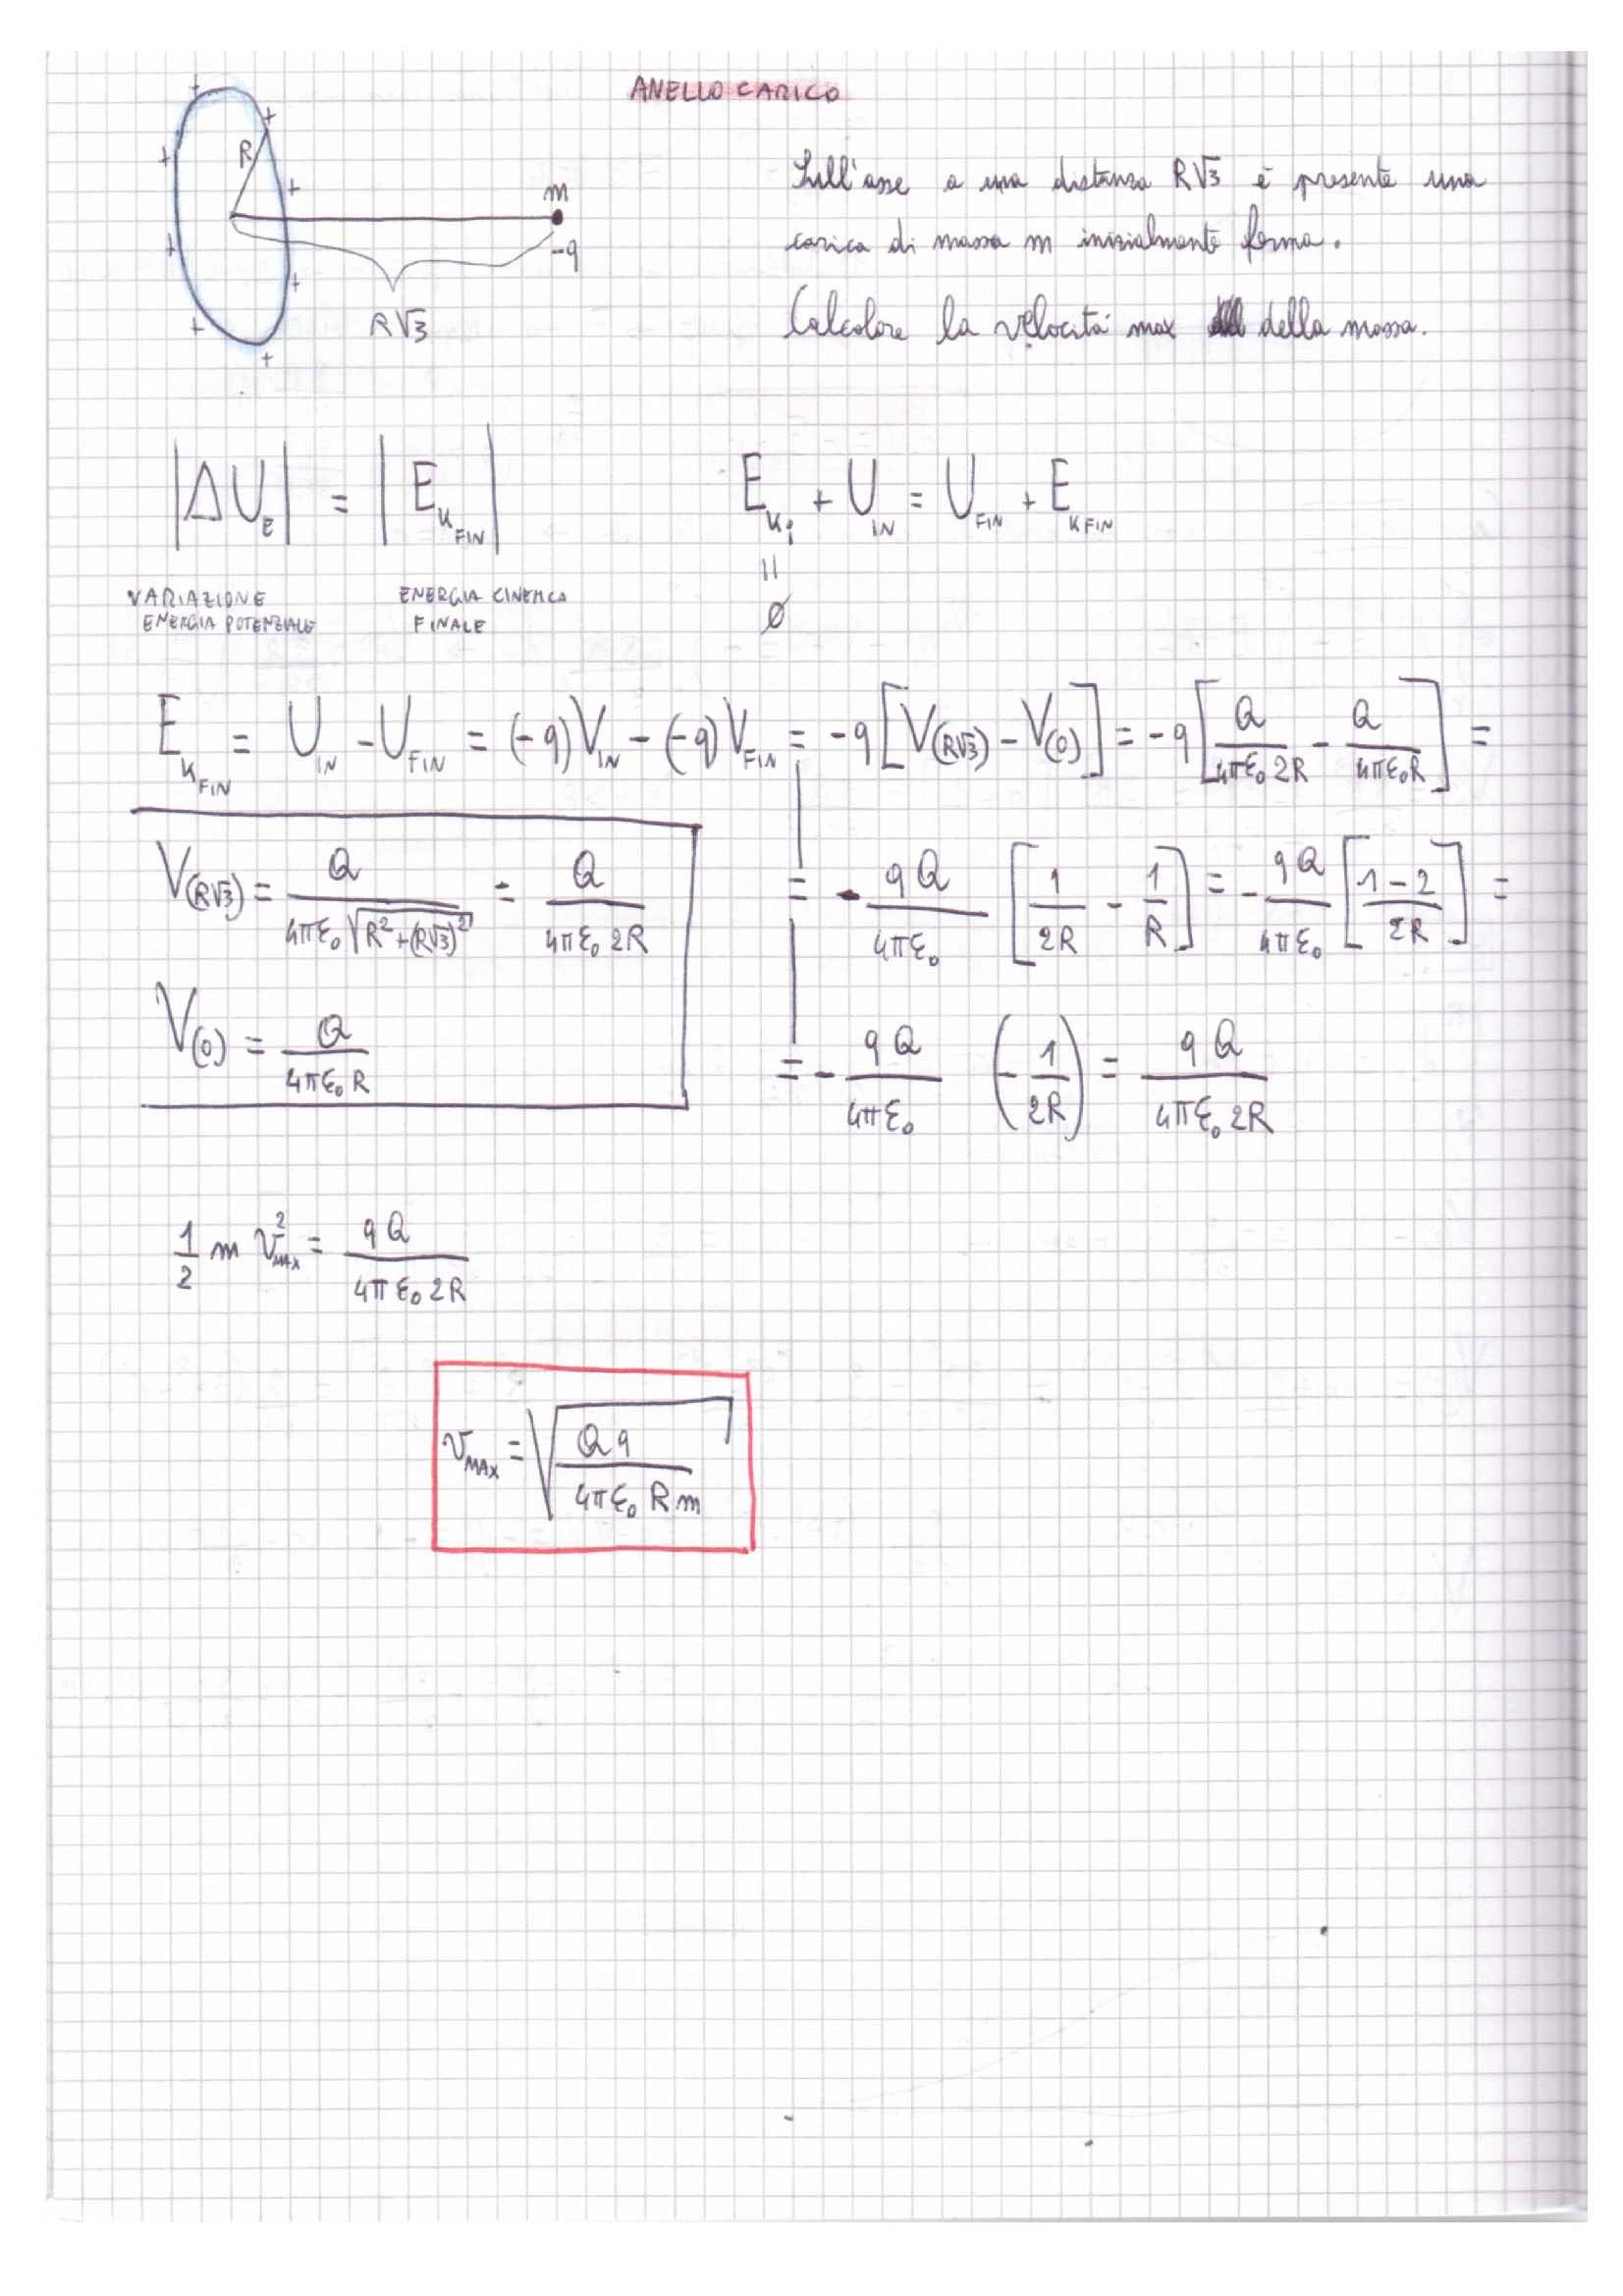 ANELLO CARICO
R
m
-q
R√3
Sull'asse a una distanza R√3 è presente una
carica di massa m inizialmente ferma.
Calcolare la velocità max della massa.
|ΔU_E| = |E_K_FIN|
E_K_i + U_IN = U_FIN + E_K FIN
=
0
VARIAZIONE
ENERGIA POTENZIALE
ENERGIA CINETICA
FINALE
E_K_FIN = U_IN - U_FIN = (-q)V_IN - (-q)V_FIN = -q[V(R√3) - V(0)] = -q[Q/(4πε₀ 2R) - Q/(4πε₀R)] =
V(R√3) = Q/(4πε₀ √(R² + (R√3)²)) = Q/(4πε₀ 2R)
= - qQ/(4πε₀) [1/(2R) - 1/R] = - qQ/(4πε₀) [(1-2)/(2R)] =
V(0) = Q/(4πε₀ R)
= - qQ/(4πε₀) (-1/(2R)) = qQ/(4πε₀ 2R)
1/2 m v²_MAX = qQ/(4πε₀ 2R)
v_MAX = √(Qq/(4πε₀ R m))